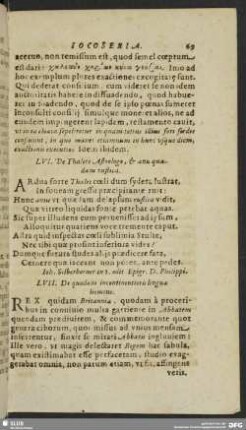 IOCOSERIA. 69
aceruo, non temissum est, quod semel cœptum
est dari: Imo ad
hoc exemplum plures exactiones excogitatæ sunt.
Qui dederat consilium, cum videret se non idem
auctoritatis habere in dissuadendo, quod habue-
rat in suadendo, quod de se ipso pœnas sumeret
inconsulti consilij simulque moneret alios, ne ad
eundem impingerent lapidem, testamento cauit,
vt in ea cloaca sepeliretur in quam totius illius fere sordes
confluunt, in quo manet etiamnum in hunc vsque diem,
exactionis euentus toties ibidem.
LVI. De Thalete Astrologo, & anu qua-
dam rustica.
ARdua forte Thales cœli dum sydera lustrat,
In foueam gressu præcipitante ruit:
Hunc anus vt quæsum delapsum rustica vidit,
Quæ vitreo liquidas fonte petebat aquas.
Sic super illudens cum peruenisset ad ipsum,
Alloquitur quatiens vore tremente caput.
Astra quid inspectas cœli sublimia Stulte,
Nec tibi quæ prosunt inferiora vides?
Damque futura studes alijs prædicere fata,
Cernere quæ iaceant non potes ante pedes.
Ioh. Selherhorner ext. ast Epigr. D. Philippi.
LVII. De quadam incontinentiore lingua
homine.
REX quidam Britanniæ, quodam à proceri-
bus in conuiuio multa garriente in Abbatem
quendam prædiuitem, & commemorante quot
genera ciborum, quot missus ad vnius mensam
inferrentur, finxit se mirari Abbatis longinum:
Ille vero, vt magis delectaret Regem hac fabula,
quam existimabat esse perfacetam, studio exag-
gerabat omnia, non parum etiam, vt fit, affingens
veris,
SLUB
DFG